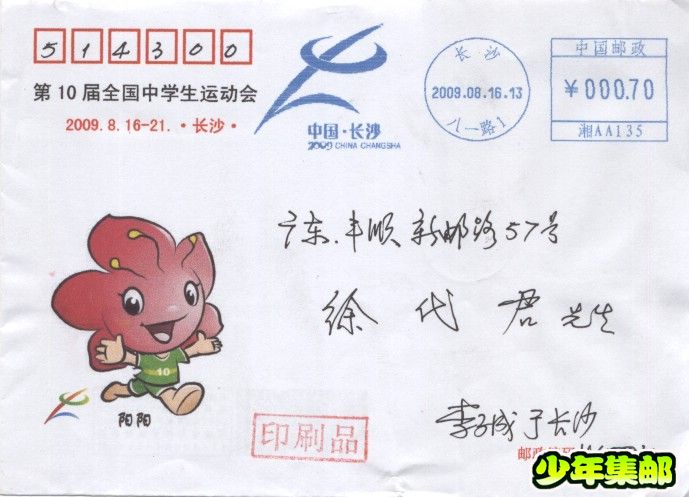 514300
第10届全国中学生运动会
2009.8.16-21.·长沙·
中国·长沙
2009 CHINA CHANGSHA
长沙
2009.08.16.13
八一路1
中国邮政
¥000.70
湘AA135
广东.丰顺新邮路57号
徐代君先生
10
阳阳
印刷品
李子成于长沙
少年集邮